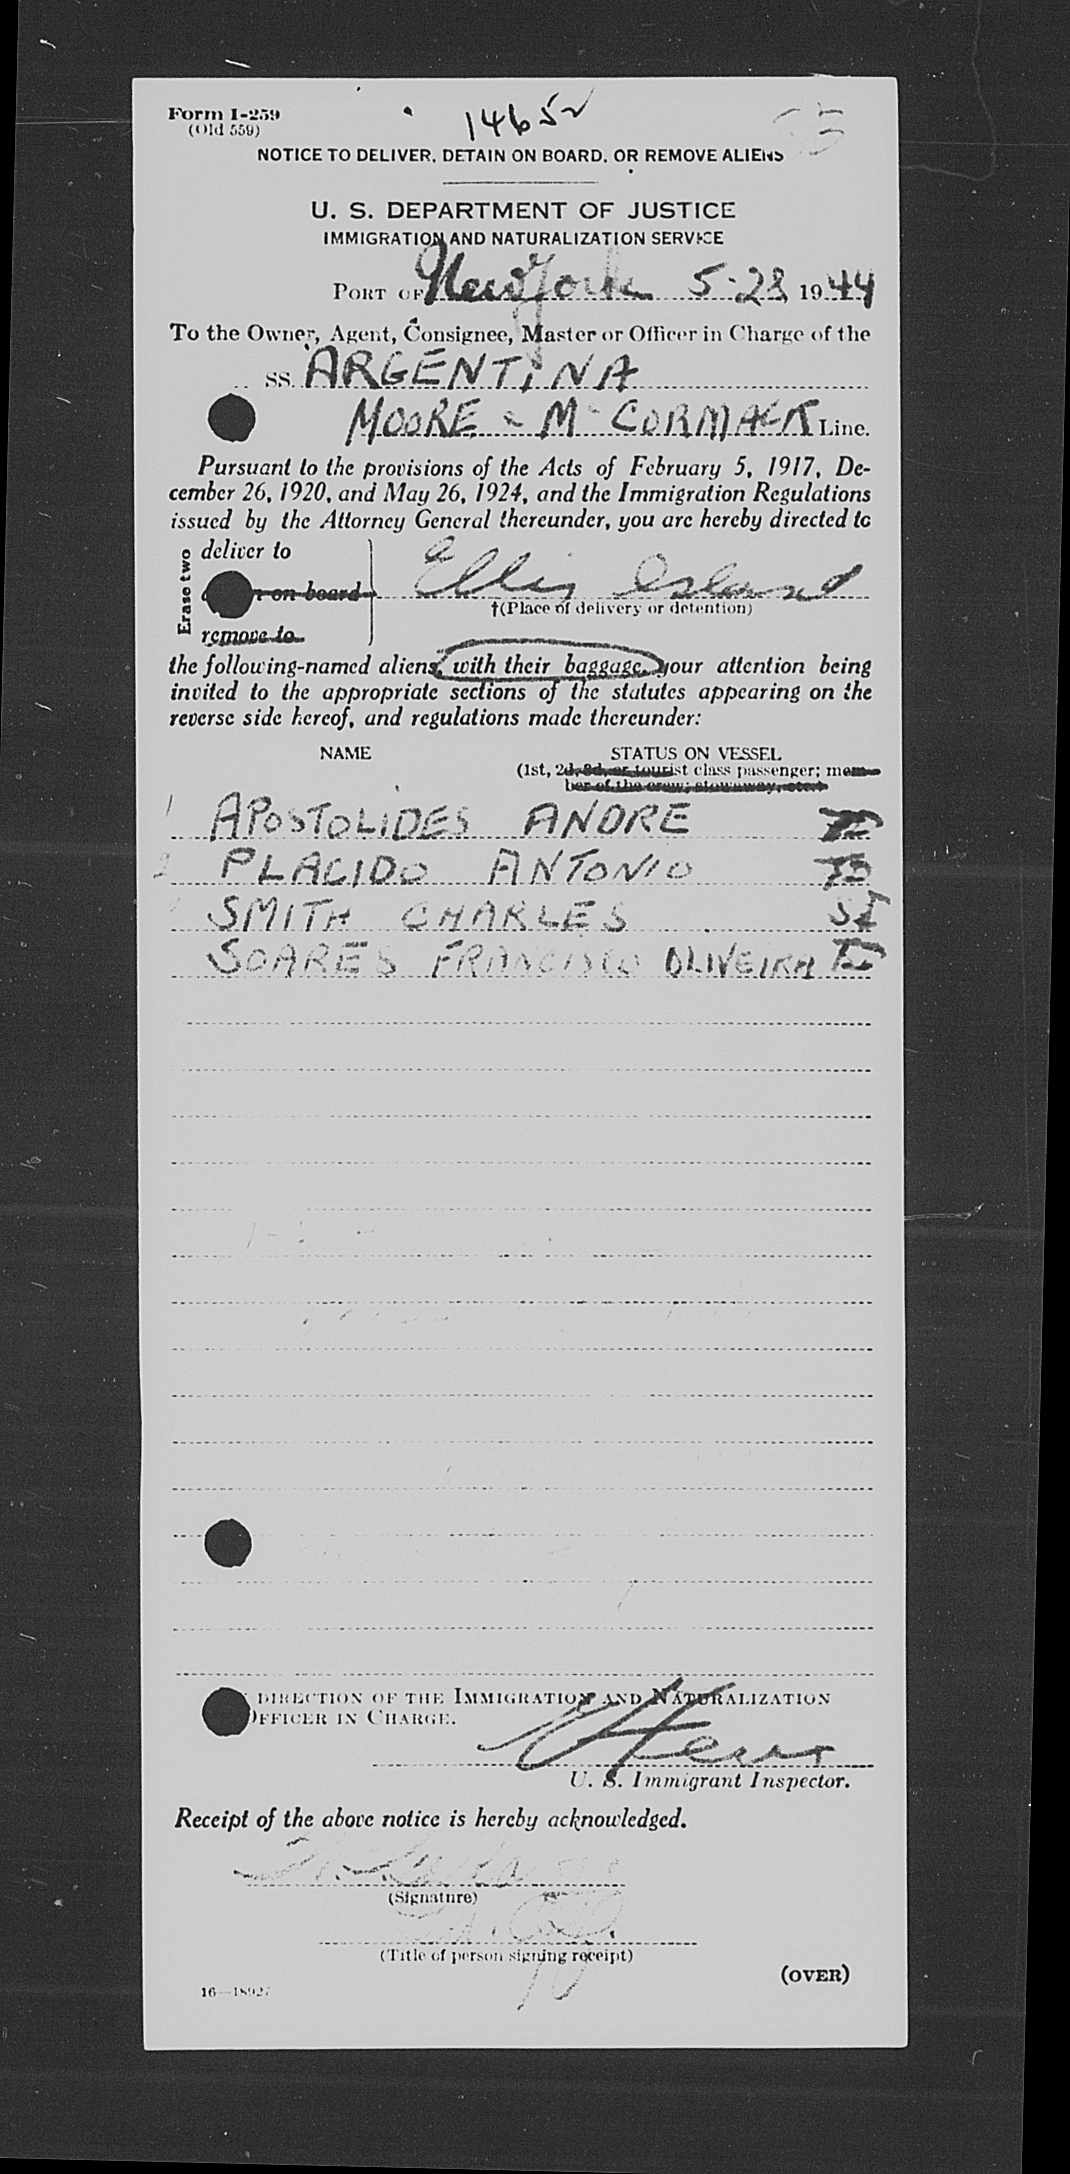 Form I-259
(Old 559)
14652
NOTICE TO DELIVER, DETAIN ON BOARD, OR REMOVE ALIENS
U. S. DEPARTMENT OF JUSTICE
IMMIGRATION AND NATURALIZATION SERVICE
PORT OF New York 5-28 1944
To the Owner, Agent, Consignee, Master or Officer in Charge of the
SS. ARGENTINA
MOORE - Mc CORMACK Line.
Pursuant to the provisions of the Acts of February 5, 1917, De-
cember 26, 1920, and May 26, 1924, and the Immigration Regulations
issued by the Attorney General thereunder, you are hereby directed to
Erase two
deliver to
on board
Ellis Island
†(Place of delivery or detention)
remove to
the following-named aliens, with their baggage, your attention being
invited to the appropriate sections of the statutes appearing on the
reverse side hereof, and regulations made thereunder:
NAME STATUS ON VESSEL
(1st, 2d, 3d, or tourist class passenger; mem-
ber of the crew; stowaway, etc.)
1 APOSTOLIDES ANDRE
2 PLACIDO ANTONIO
SMITH CHARLES SI
SOARES FRANCISCO OLIVEIRA
DIRECTION OF THE IMMIGRATION AND NATURALIZATION
OFFICER IN CHARGE.
U. S. Immigrant Inspector.
Receipt of the above notice is hereby acknowledged.
(Signature)
(Title of person signing receipt)
(OVER)
16—18927